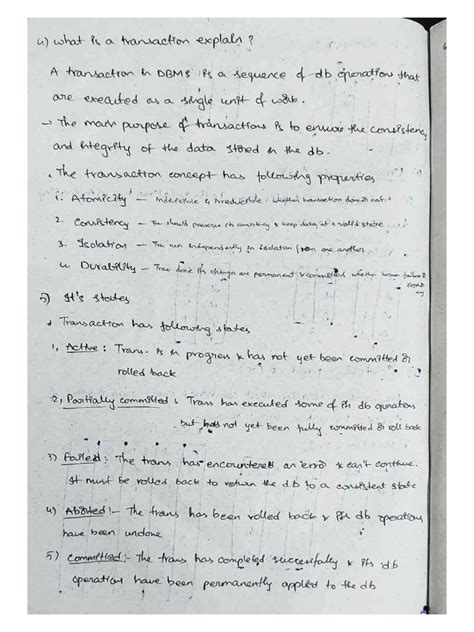 4) What is a transaction explain ?
A transaction in DBMS is a sequence of db operations that
are executed as a single unit of work.
→ The main purpose of transactions is to ensure the consistency
and integrity of the data stored in the db.
. The transaction concept has following properties
1. Atomicity – Indivisible & irreducible whether transaction done or not
2. Consistency – The should preserve its consistency & keep data at a valid state
3. Isolation – The run independently in isolation from one another
4. Durability – Trans done its change are permanent & committed whether failure
5) It's states
Transaction has following states
1, Active : Trans. is in progress & has not yet been committed or
rolled back
2, Partially committed : Trans has executed some of its db operations
but has not yet been fully committed or roll back
3) Failed :- The trans has encountered an error & can't continue.
It must be rolled back to return the db to a consistent state
4) Aborted :- The trans has been rolled back & its db operations
have been undone
5) Committed :- The trans has completed successfully & its db
operations have been permanently applied to the db